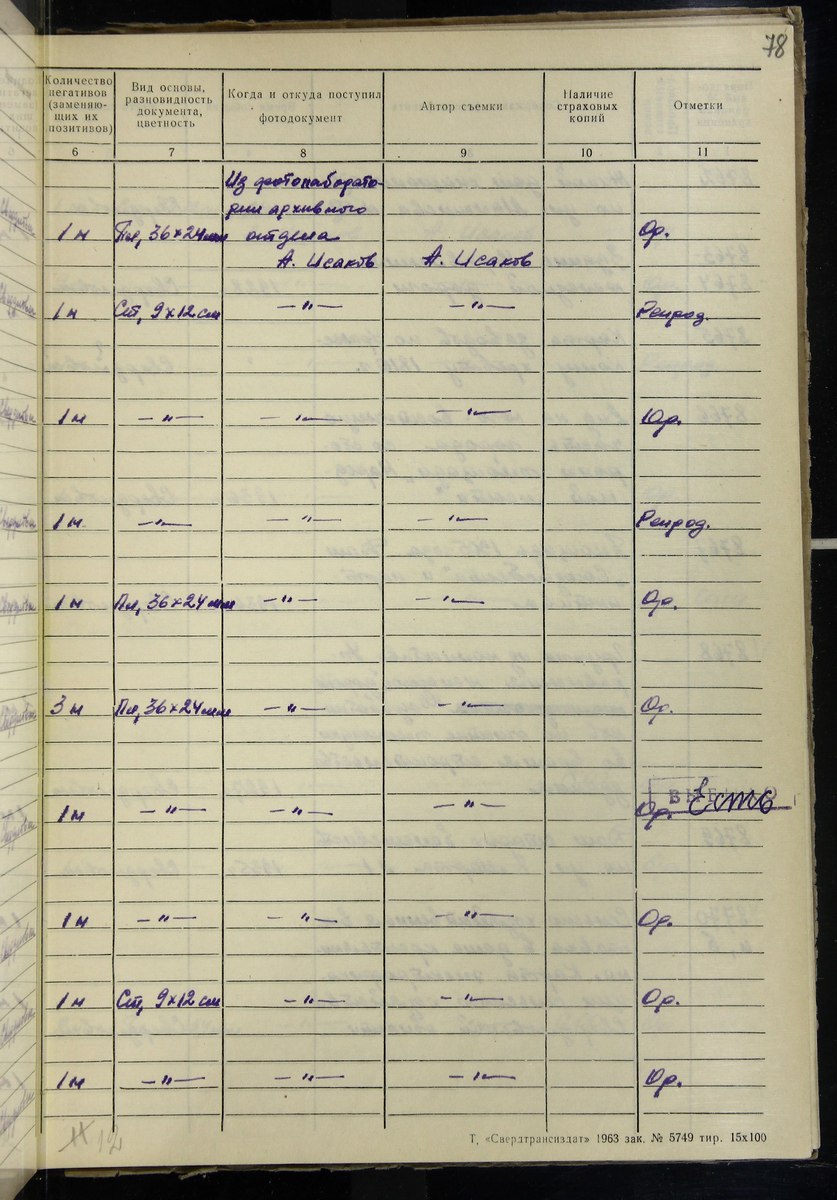 78
Количество негативов (заменяю- щих их позитивов)
Вид основы, разновидность документа, цветность
Когда и откуда поступил фотодокумент
Автор съемки
Наличие страховых копий
Отметки
6 7 8 9 10 11
Из фотолаборато-
рии архивного
1 н Пл, 36×24мм отдела Ор.
А. Исаков А. Исаков
1 н Ст, 9×12 см —"— —"— Репрод.
1 н —"— —"— —"— Ор.
1 н —"— —"— —"— Репрод.
1 н Пл, 36×24 мм —"— —"— Ор.
3 н Пл, 36×24 мм —"— —"— Ор.
1 н —"— —"— —"— Ор. Есть
1 н —"— —"— —"— Ор.
1 н Ст, 9×12 см —"— —"— Ор.
1 н —"— —"— —"— Ор.
12
Т. «Свердтрансиздат» 1963 зак. № 5749 тир. 15х100